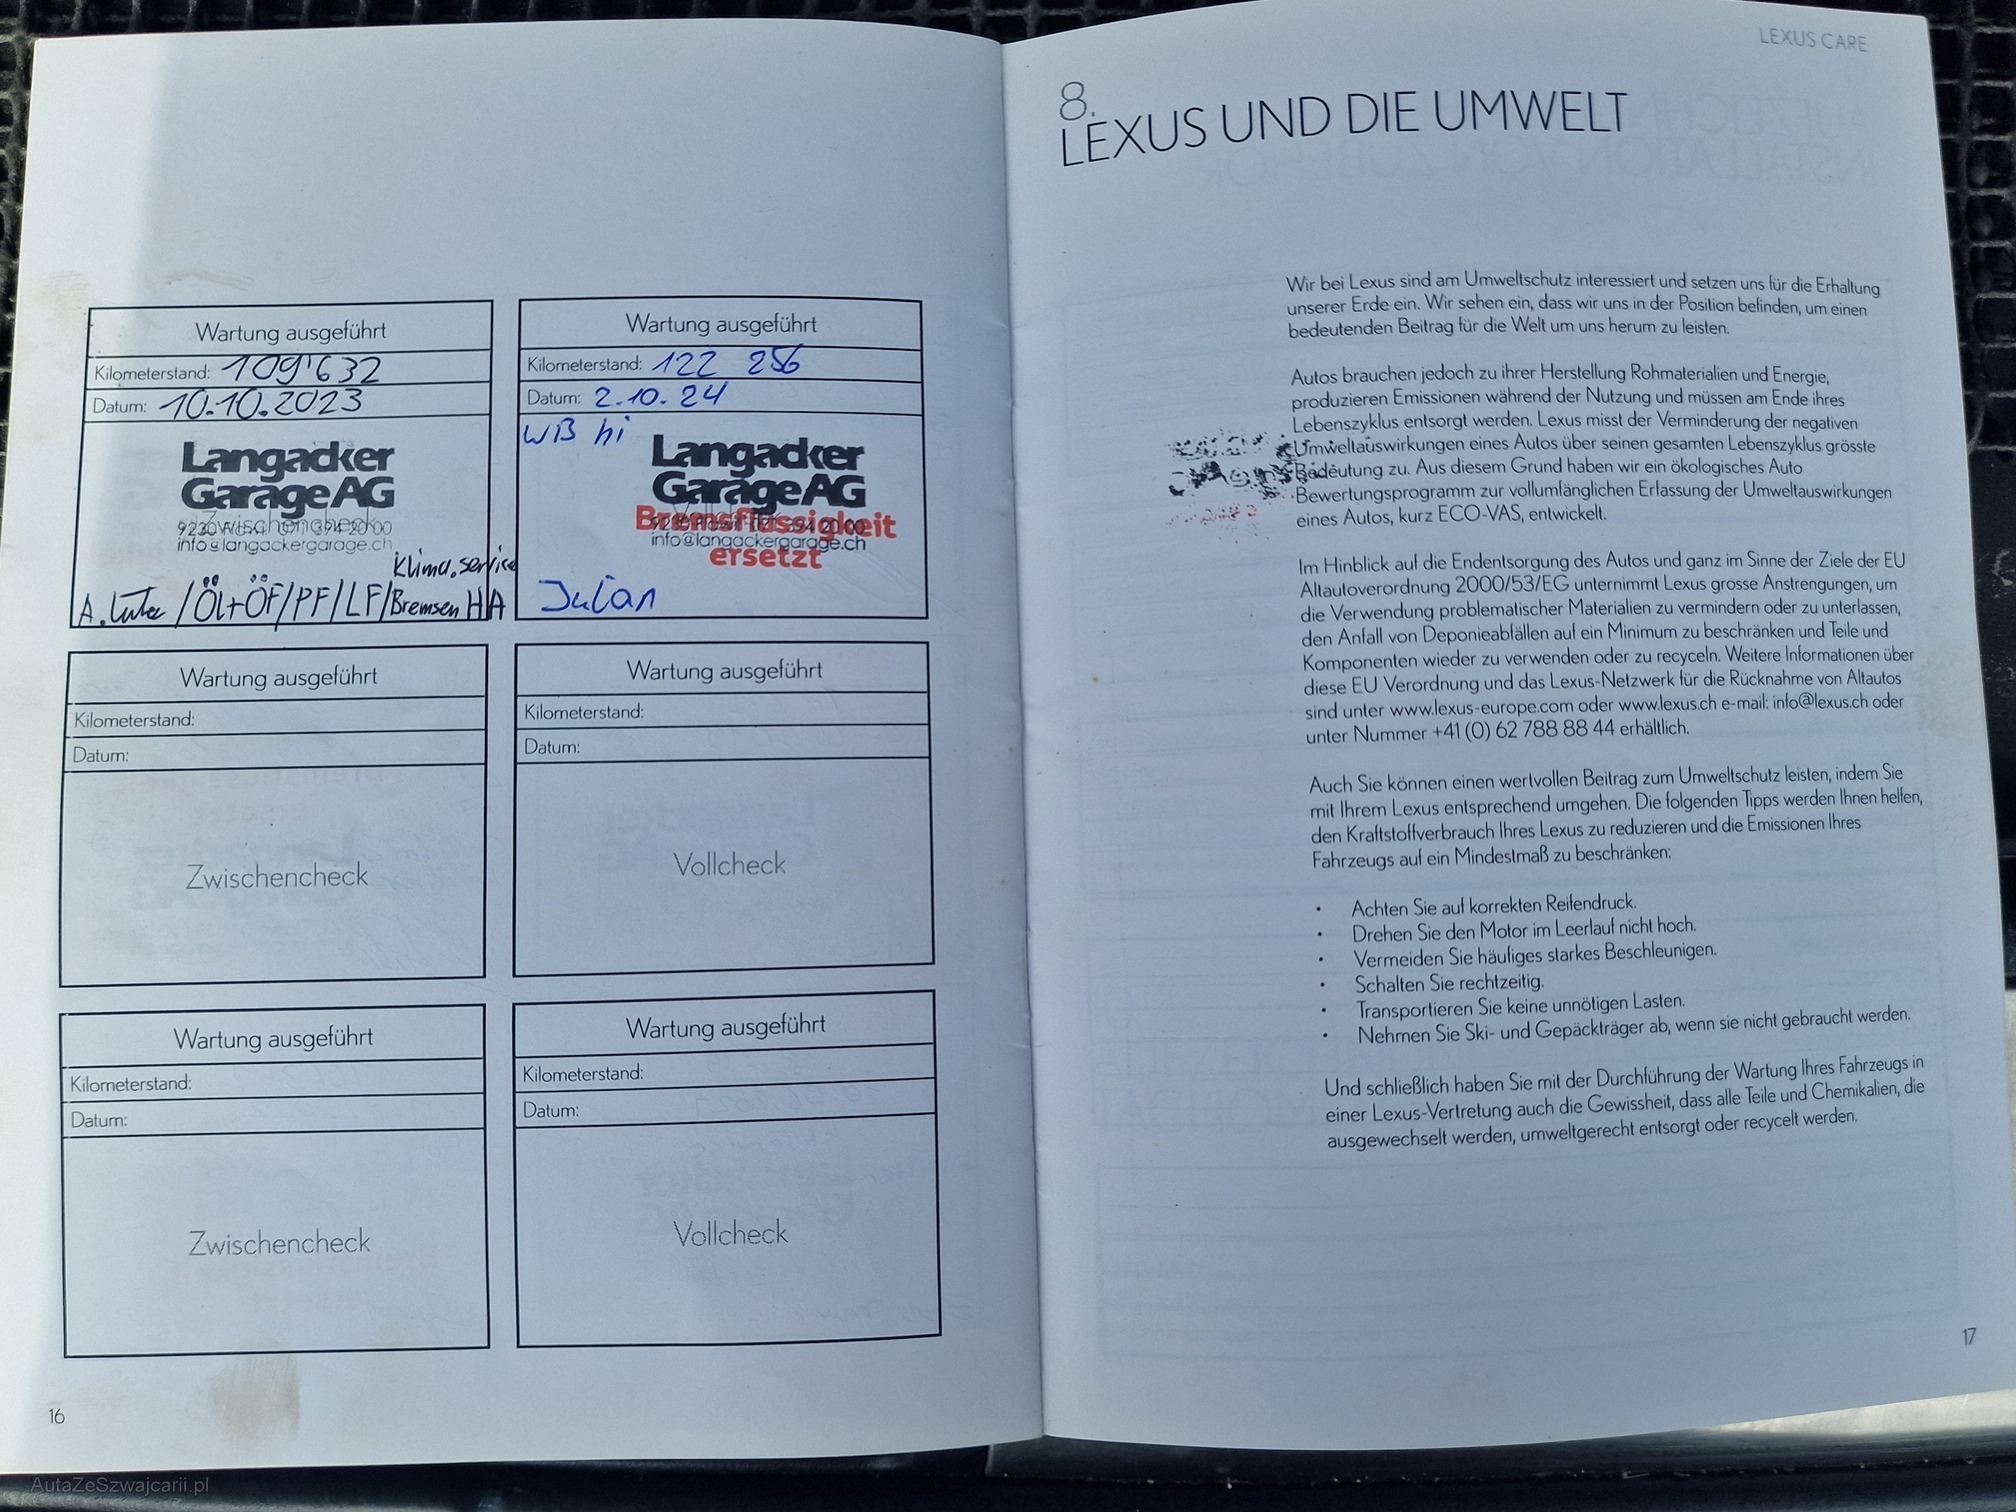 Wartung ausgeführt
Kilometerstand: 109'632
Datum: 10.10.2023
Langacker
Garage AG
Zwischencheck
info@langackergarage.ch
Klima.service
/Öl+ÖF/PF/LF/Bremsen HA
Wartung ausgeführt
Kilometerstand: 122 256
Datum: 2.10.24
WB hi
Langacker
Garage AG
Bremsflüssigkeit
info@langackergarage.ch
ersetzt
Julian
Wartung ausgeführt
Kilometerstand:
Datum:
Zwischencheck
Wartung ausgeführt
Kilometerstand:
Datum:
Vollcheck
Wartung ausgeführt
Kilometerstand:
Datum:
Zwischencheck
Wartung ausgeführt
Kilometerstand:
Datum:
Vollcheck
16
LEXUS CARE
8.
LEXUS UND DIE UMWELT
Wir bei Lexus sind am Umweltschutz interessiert und setzen uns für die Erhaltung
unserer Erde ein. Wir sehen ein, dass wir uns in der Position befinden, um einen
bedeutenden Beitrag für die Welt um uns herum zu leisten.
Autos brauchen jedoch zu ihrer Herstellung Rohmaterialien und Energie,
produzieren Emissionen während der Nutzung und müssen am Ende ihres
Lebenszyklus entsorgt werden. Lexus misst der Verminderung der negativen
Umweltauswirkungen eines Autos über seinen gesamten Lebenszyklus grösste
Bedeutung zu. Aus diesem Grund haben wir ein ökologisches Auto
Bewertungsprogramm zur vollumfänglichen Erfassung der Umweltauswirkungen
eines Autos, kurz ECO-VAS, entwickelt.
Im Hinblick auf die Endentsorgung des Autos und ganz im Sinne der Ziele der EU
Altautoverordnung 2000/53/EG unternimmt Lexus grosse Anstrengungen, um
die Verwendung problematischer Materialien zu vermindern oder zu unterlassen,
den Anfall von Deponieabfällen auf ein Minimum zu beschränken und Teile und
Komponenten wieder zu verwenden oder zu recyceln. Weitere Informationen über
diese EU Verordnung und das Lexus-Netzwerk für die Rücknahme von Altautos
sind unter www.lexus-europe.com oder www.lexus.ch e-mail: info@lexus.ch oder
unter Nummer +41 (0) 62 788 88 44 erhältlich.
Auch Sie können einen wertvollen Beitrag zum Umweltschutz leisten, indem Sie
mit Ihrem Lexus entsprechend umgehen. Die folgenden Tipps werden Ihnen helfen,
den Kraftstoffverbrauch Ihres Lexus zu reduzieren und die Emissionen Ihres
Fahrzeugs auf ein Mindestmaß zu beschränken:
• Achten Sie auf korrekten Reifendruck.
• Drehen Sie den Motor im Leerlauf nicht hoch.
• Vermeiden Sie häufiges starkes Beschleunigen.
• Schalten Sie rechtzeitig.
• Transportieren Sie keine unnötigen Lasten.
• Nehmen Sie Ski- und Gepäckträger ab, wenn sie nicht gebraucht werden.
Und schließlich haben Sie mit der Durchführung der Wartung Ihres Fahrzeugs in
einer Lexus-Vertretung auch die Gewissheit, dass alle Teile und Chemikalien, die
ausgewechselt werden, umweltgerecht entsorgt oder recycelt werden.
17
AutaZeSzwajcarii.pl